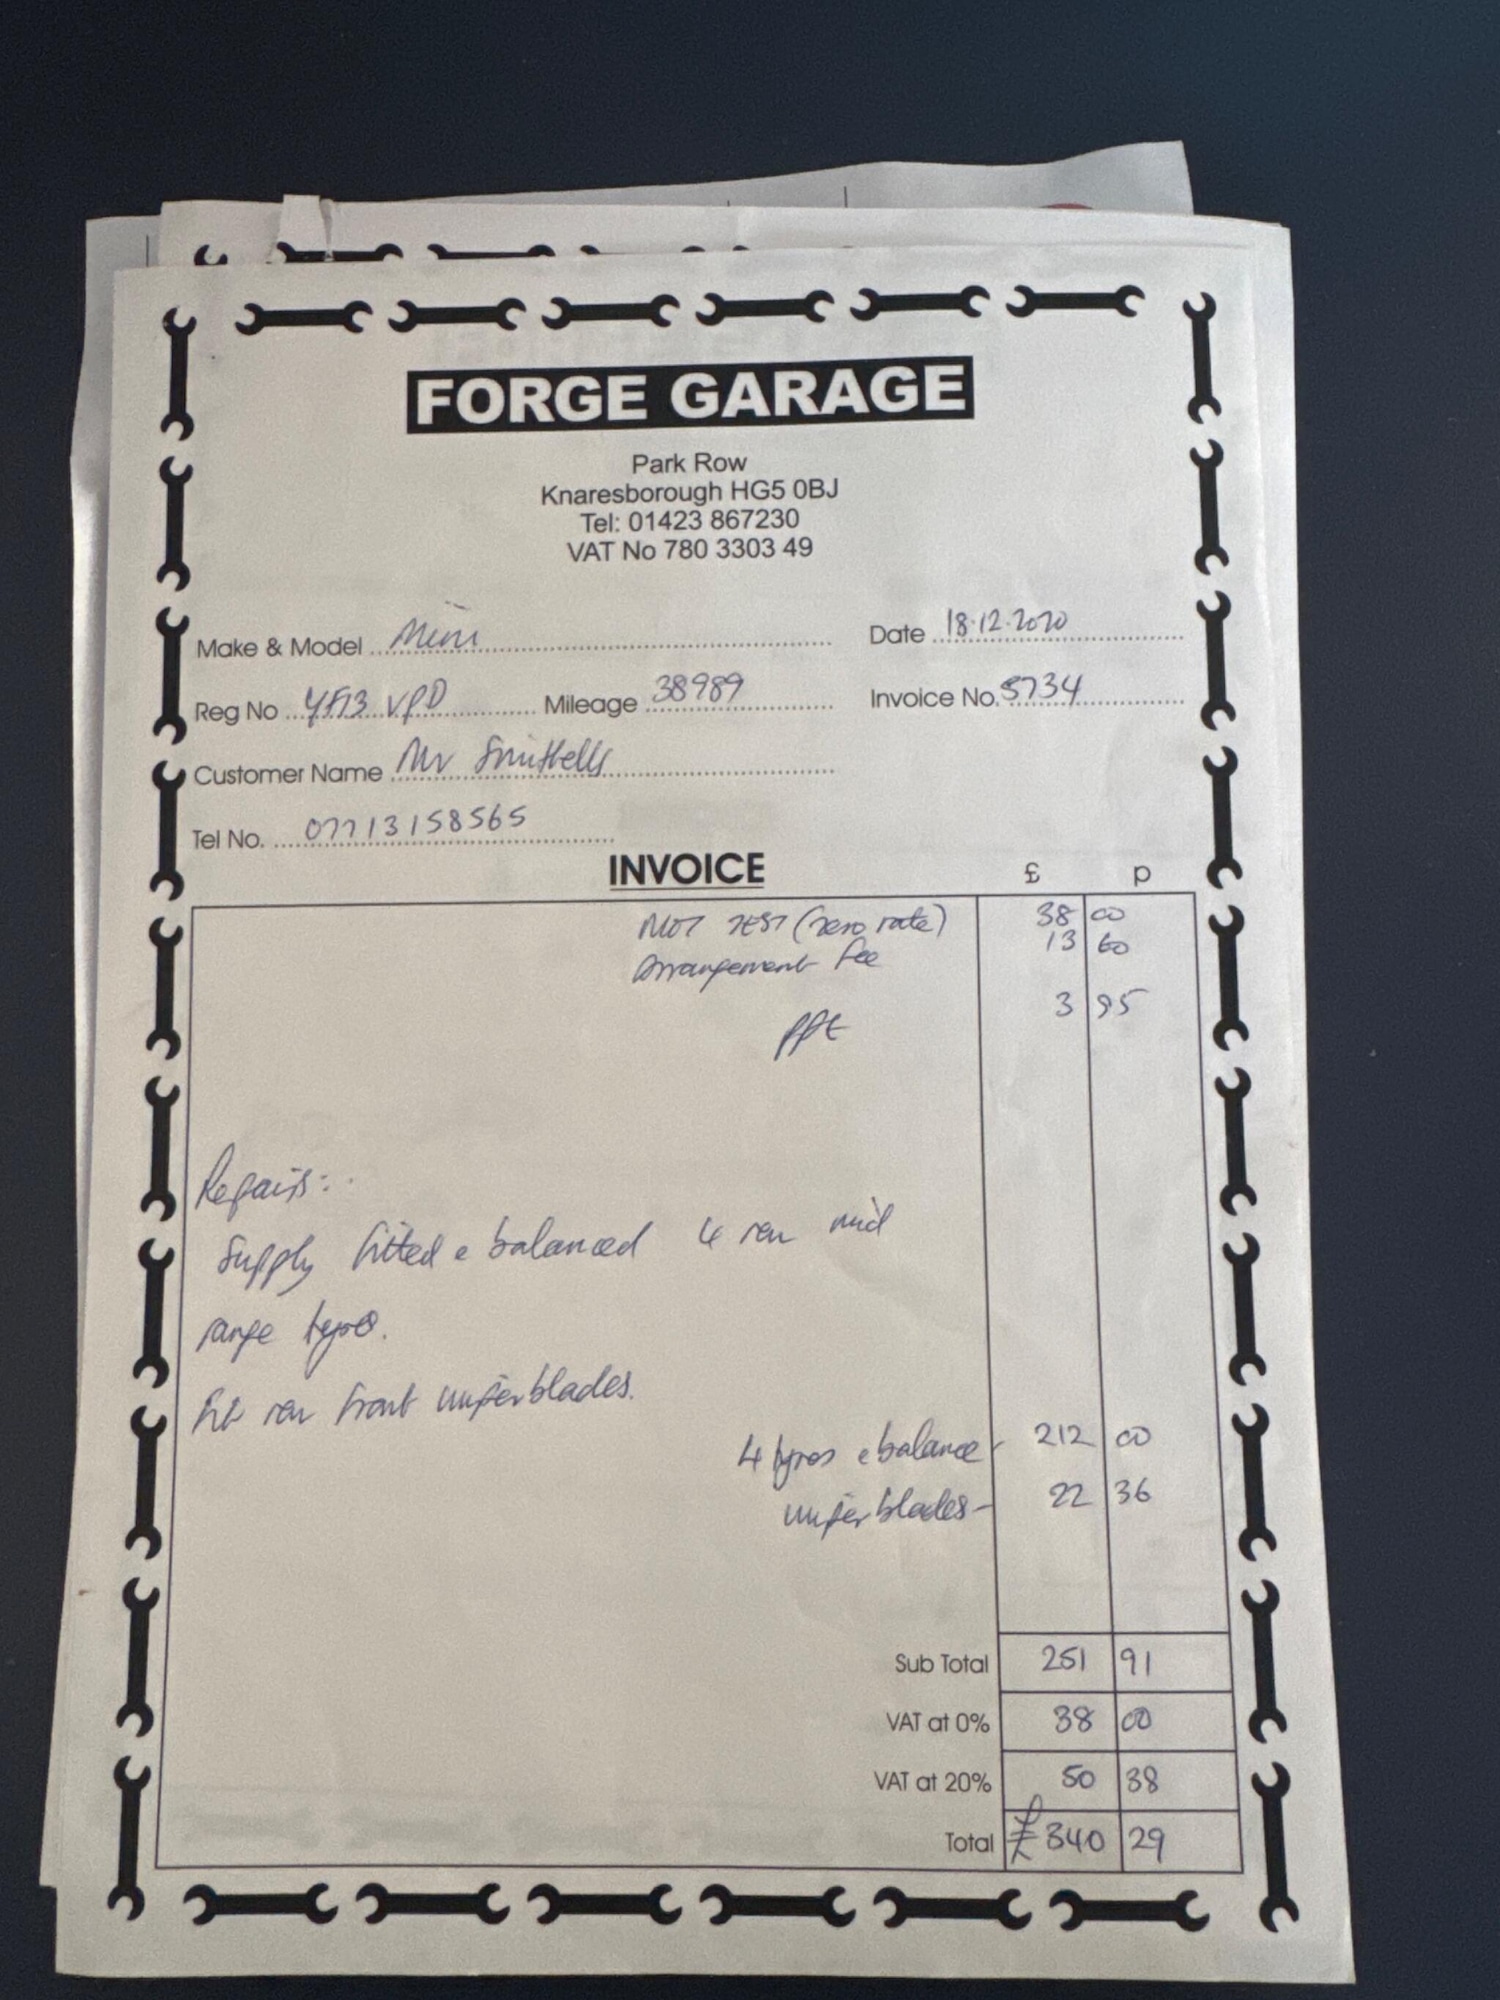 FORGE GARAGE
Park Row
Knaresborough HG5 0BJ
Tel: 01423 867230
VAT No 780 3303 49
Make & Model Mini Date 18.12.2020
Reg No YF13 VPD Mileage 38989 Invoice No. 5734
Customer Name Mr Smithells
Tel No. 07713158565
INVOICE £ p
MOT TEST (zero rate) 38 00
Arrangement Fee 13 60
PPE 3 95
Repairs:
Supply fitted & balanced 4 new mid
range tyres.
Fit new front wiperblades.
4 tyres & balance - 212 00
wiperblades - 22 36
Sub Total 251 91
VAT at 0% 38 00
VAT at 20% 50 38
Total £340 29